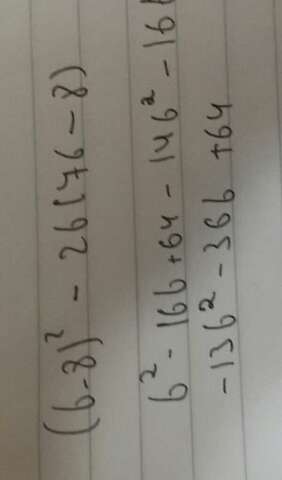 (b-8)² - 2b(7b - 8)
b² - 16b + 64 - 14b² - 16b
-13b² - 36b + 64